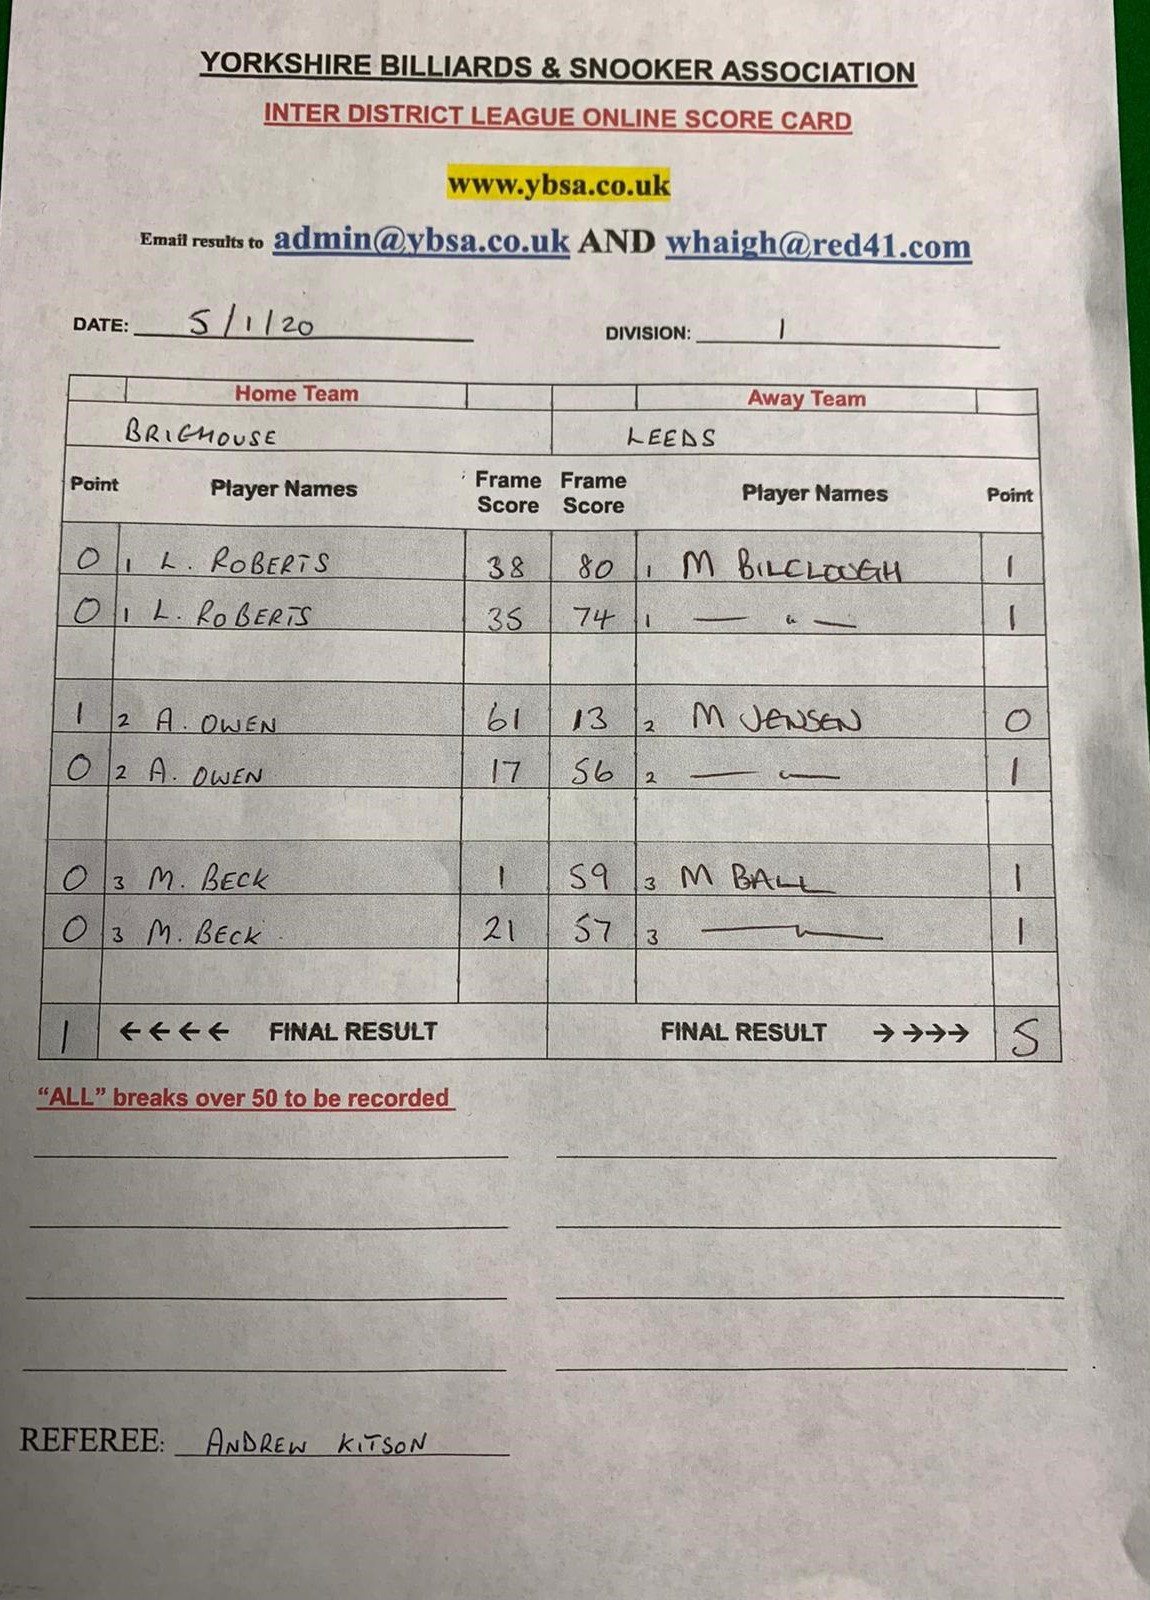 YORKSHIRE BILLIARDS & SNOOKER ASSOCIATION
INTER DISTRICT LEAGUE ONLINE SCORE CARD
www.ybsa.co.uk
Email results to admin@ybsa.co.uk AND whaigh@red41.com
DATE: 5/1/20 DIVISION: 1
Home Team Away Team
BRIGHOUSE LEEDS
Point Player Names Frame Score Frame Score Player Names Point
0 1 L. ROBERTS 38 80 1 M BILCLOUGH 1
0 1 L. ROBERTS 35 74 1 — " — 1
1 2 A. OWEN 61 13 2 M JENSEN 0
0 2 A. OWEN 17 56 2 — " — 1
0 3 M. BECK 1 59 3 M BALL 1
0 3 M. BECK 21 57 3 — " — 1
1 ←←←← FINAL RESULT FINAL RESULT →→→→ 5
"ALL" breaks over 50 to be recorded
REFEREE: ANDREW KITSON